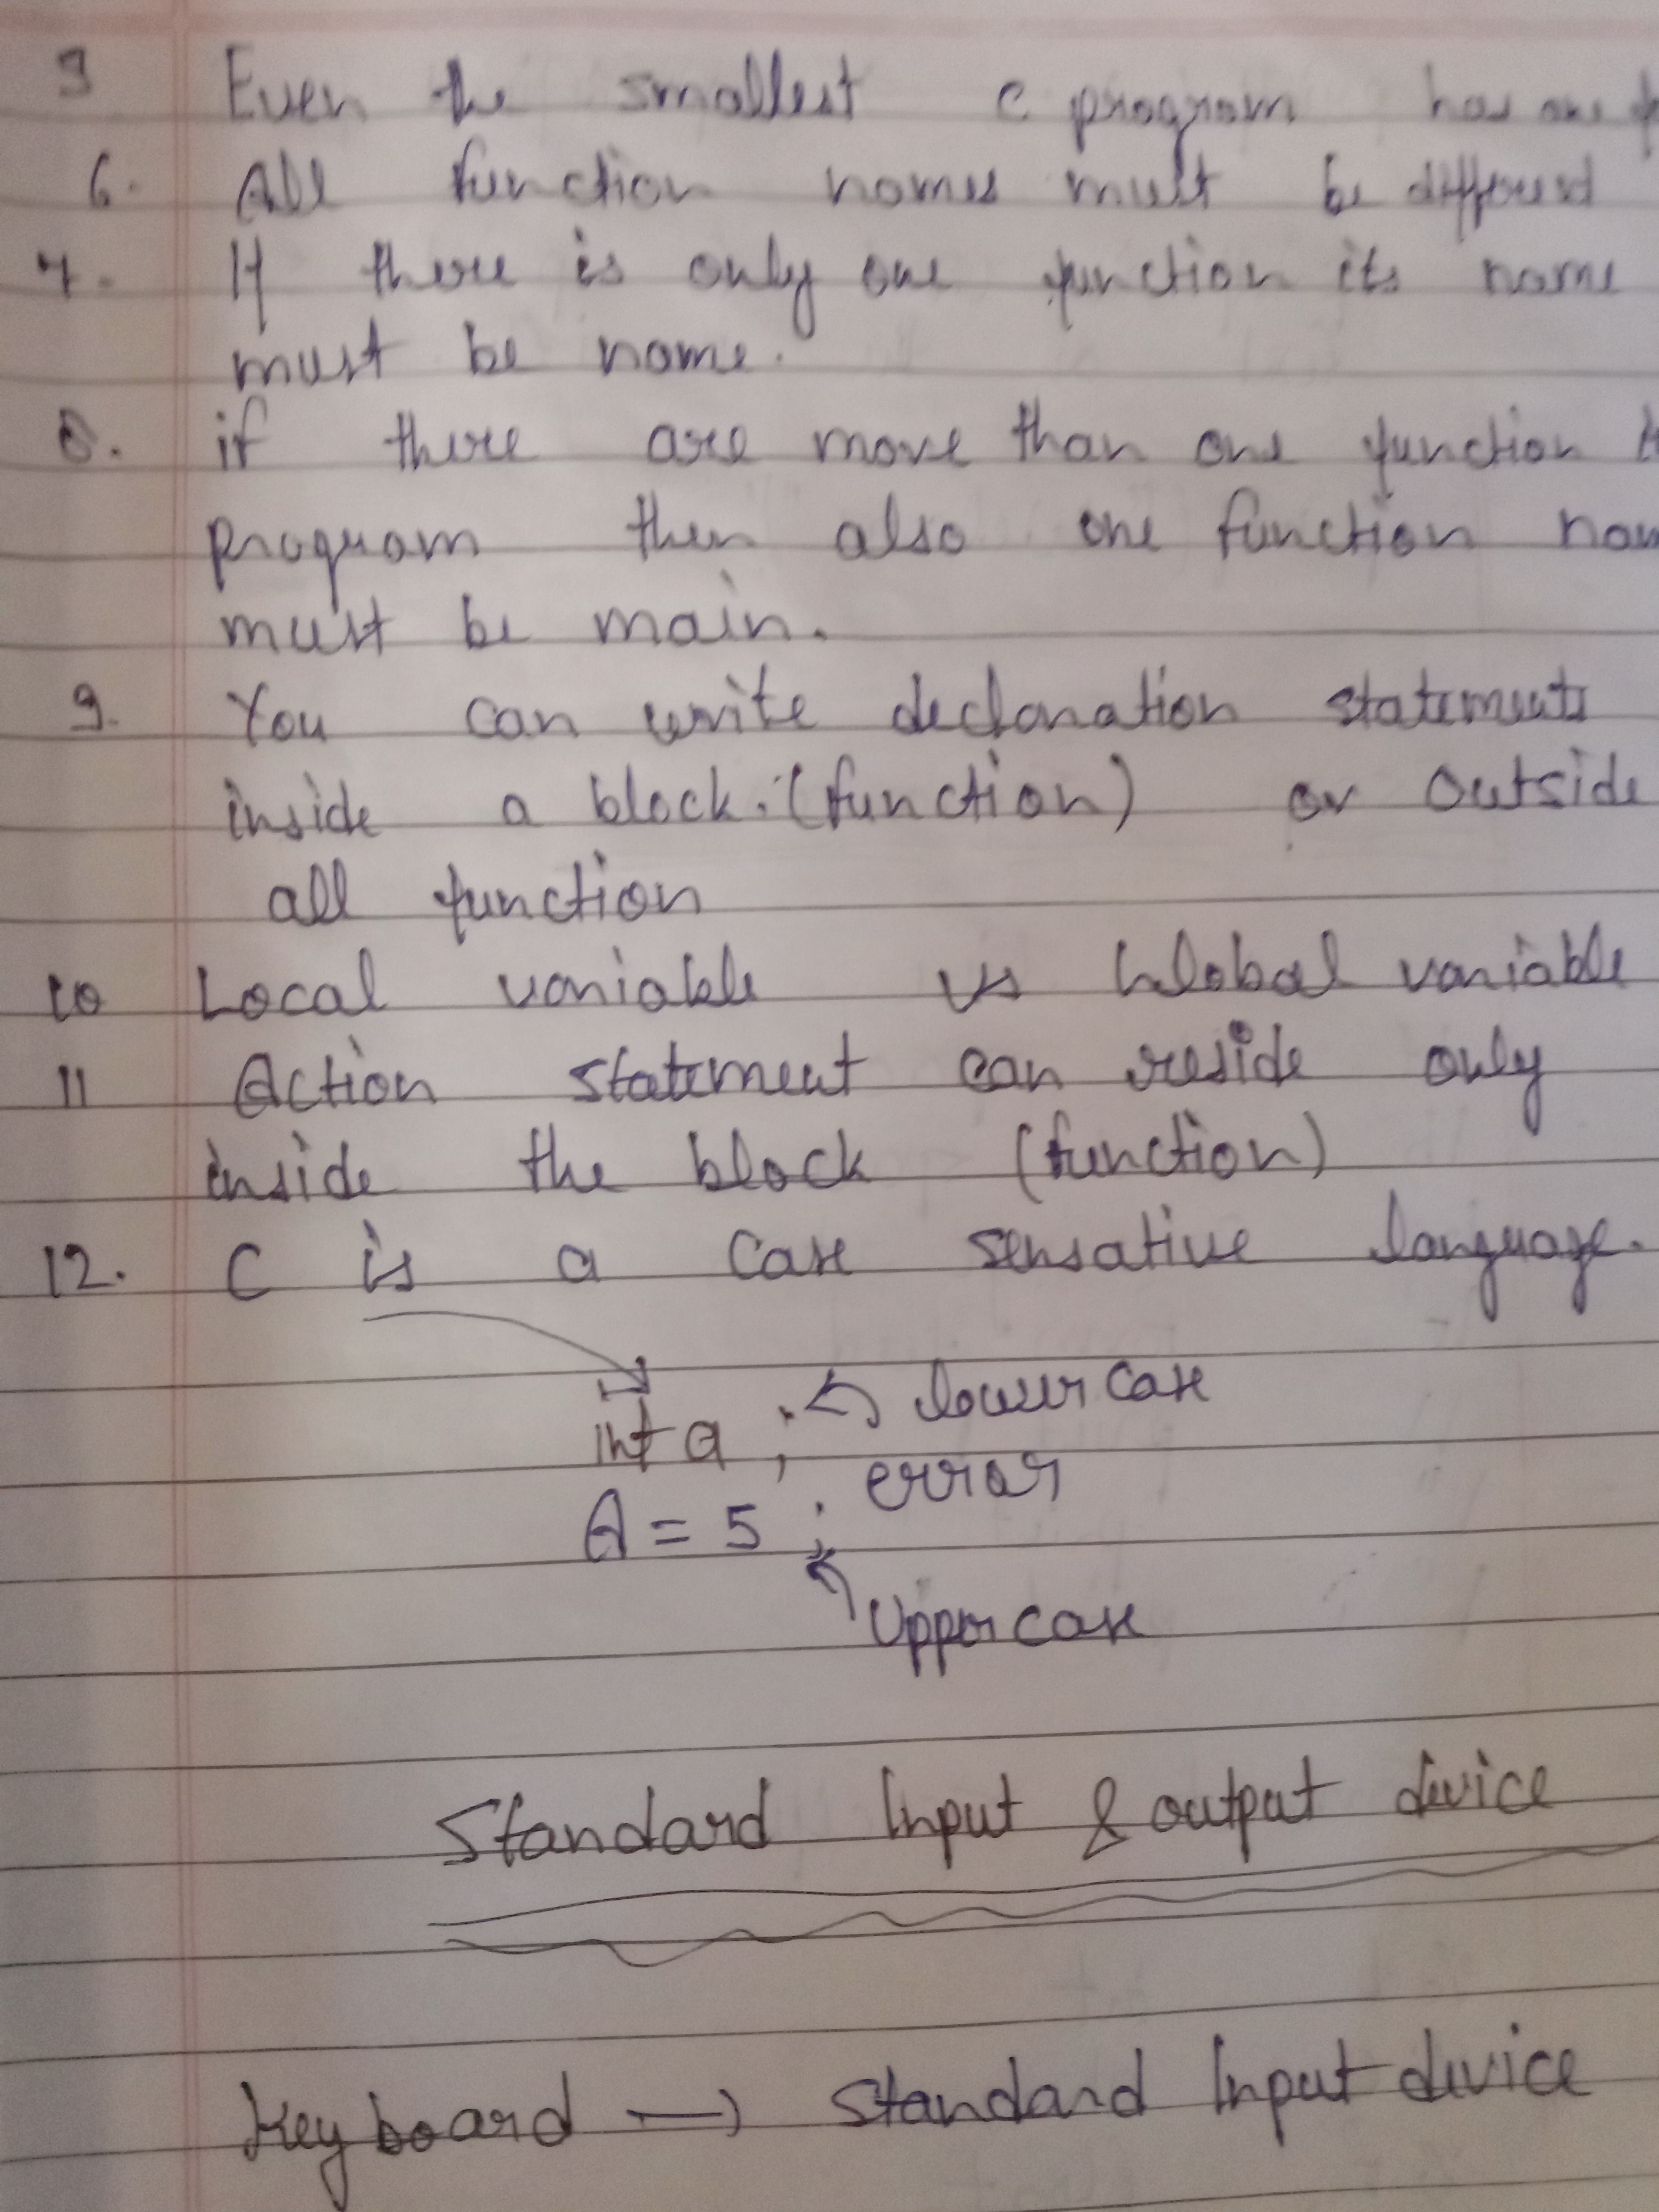 Even the smallest c program has one
6. All function names must be different
7. If there is only one function its name
must be name.
8. if there are more than one function
program then also one function
must be main.
9. You can write declaration statements
inside a block. (function) or outside
all function
10 Local variable vs Global variable
11 Action statement can reside only
inside the block (function)
12. C is a Case sensative language.
int a ; lower case
error
A = 5 ;
Upper case
Standard Input & output device
Keyboard → Standard Input device